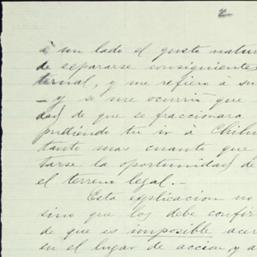 2
á un lado el gusto natur
de separarse consiguiente
ternal, y me refiero á su
– y si me ocurria que
dad de que se fraccionara
pudiendo tu ir á Chihu
tante mas cuanto que
tarse la oportunidad de
el terreno legal. –
Esta esplicacion no
sino que los debe confir
de que es imposible acer
en el lugar de accion, y a